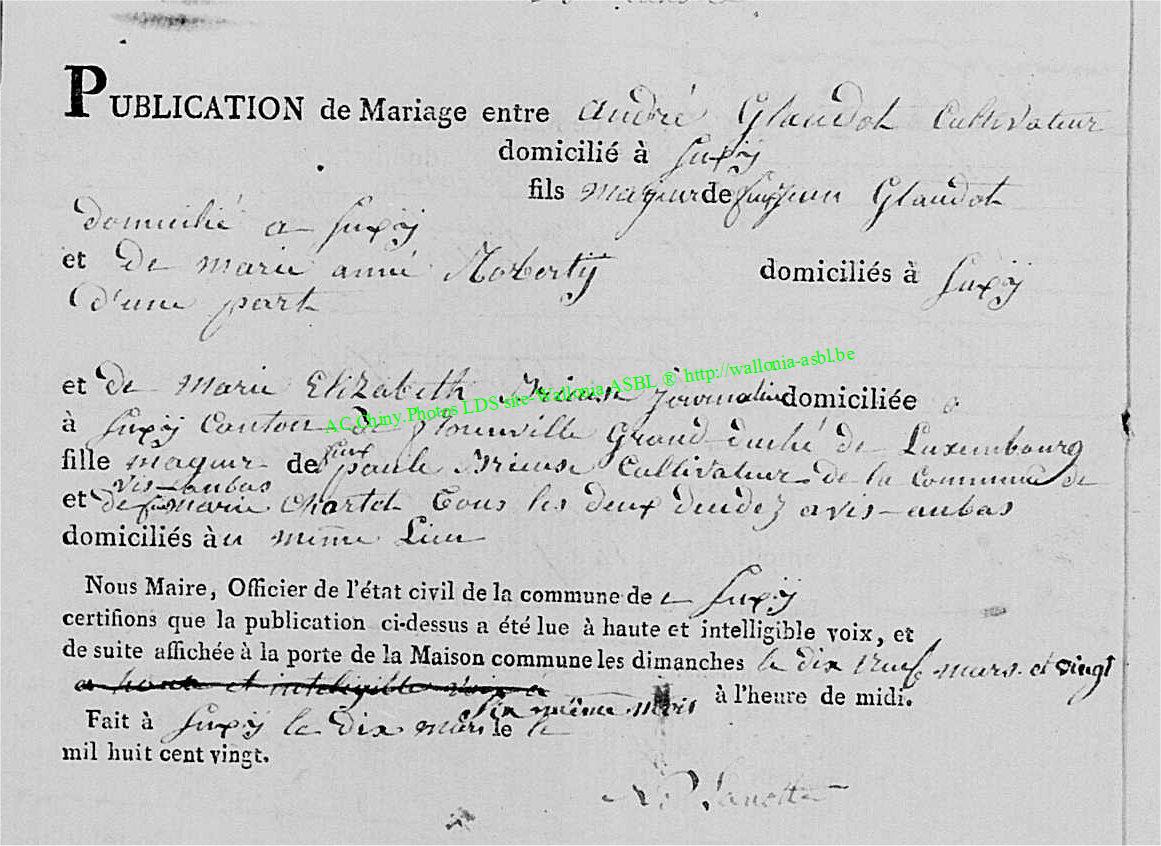 PUBLICATION de Mariage entre André Glaudot Cultivateur
domicilié à Suxÿ
fils mageur de feu jean Glaudot
domicilié a Suxÿ
et de marie anne domiciliés à Suxÿ
D'une part
et de Marie Elizabeth domiciliée a
AC.Chiny.Photos LDS site-Wallonia ASBL ® http://wallonia-asbl.be
à Suxÿ Canton de florenville Grand duché de Luxembourg
fille mageur de feux paule Cultivateur de la Commune de
vis-aubas
et de feu marie Chartot Tous les deux a vis-aubas
domiciliés à u même Lieu
Nous Maire, Officier de l'état civil de la commune de Suxÿ
certifions que la publication ci-dessus a été lue à haute et intelligible voix, et
de suite affichée à la porte de la Maison commune les dimanches le dix neuf mars et vingt
a haute et inteligible voix à à l'heure de midi.
Six même mois
Fait à Suxÿ le dix mars le
mil huit cent vingt.